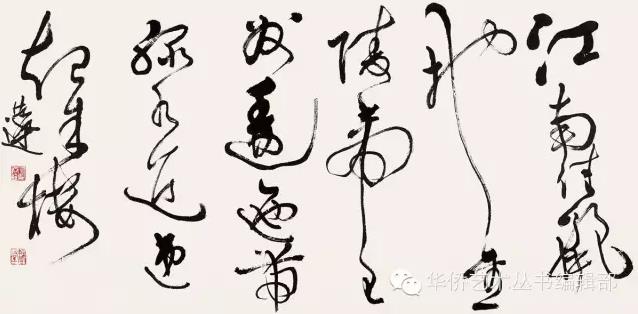 江南佳麗
地金
陵帝王
州逶迤帶
綠水迢遞
起朱樓
华侨艺术丛书编辑部